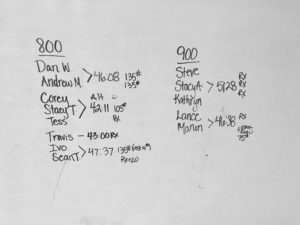 800
Dan W.
Andrew M. > 46:08 135#
135#
Corey
Stacy T > 42:11 105#
Tess Rx
Travis - 43:00 Rx
Ivo
Sean T > 47:37 135#
Rx+20
900
Steve Rx
Stacy A. > 51:28 Rx
Kathryn Rx
Lance Rx
Marion > 46:38
75#